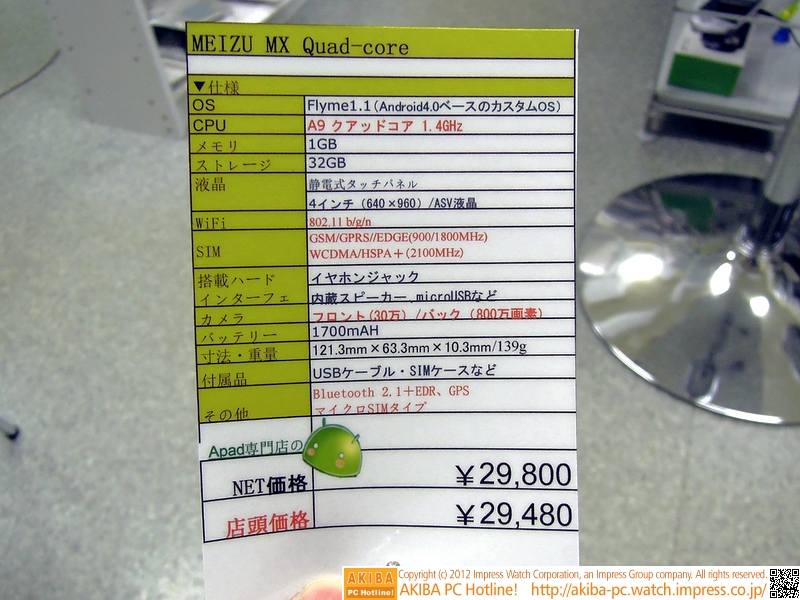 MEIZU MX Quad-core
▼仕様
OS Flyme1.1(Android4.0ベースのカスタムOS)
CPU A9 クアッドコア 1.4GHz
メモリ 1GB
ストレージ 32GB
液晶 静電式タッチパネル
4インチ（640×960）/ASV液晶
WiFi 802.11 b/g/n
SIM GSM/GPRS//EDGE(900/1800MHz)
WCDMA/HSPA＋(2100MHz)
搭載ハード イヤホンジャック
インターフェ 内蔵スピーカー、microUSBなど
カメラ フロント(30万)/バック（800万画素）
バッテリー 1700mAH
寸法・重量 121.3mm×63.3mm×10.3mm/139g
付属品 USBケーブル・SIMケースなど
Bluetooth 2.1＋EDR、GPS
その他 マイクロSIMタイプ
Apad専門店の
NET価格 ￥29,800
店頭価格 ￥29,480
AKIBA PC Hotline!
Copyright (c) 2012 Impress Watch Corporation, an Impress Group company. All rights reserved.
AKIBA PC Hotline! http://akiba-pc.watch.impress.co.jp/